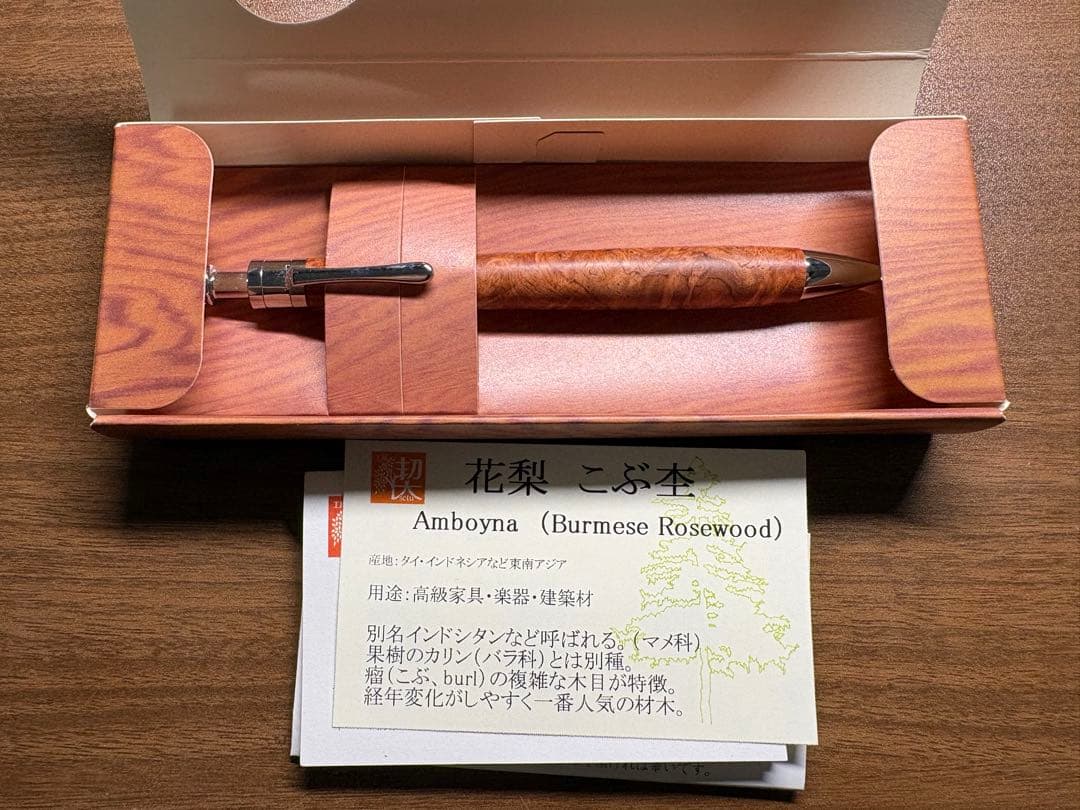 契
setu
花梨 こぶ杢
Amboyna （Burmese Rosewood）
産地：タイ・インドネシアなど東南アジア
用途：高級家具・楽器・建築材
別名インドシタンなど呼ばれる。（マメ科）
果樹のカリン（バラ科）とは別種。
瘤（こぶ、burl）の複雑な木目が特徴。
経年変化がしやすく一番人気の材木。